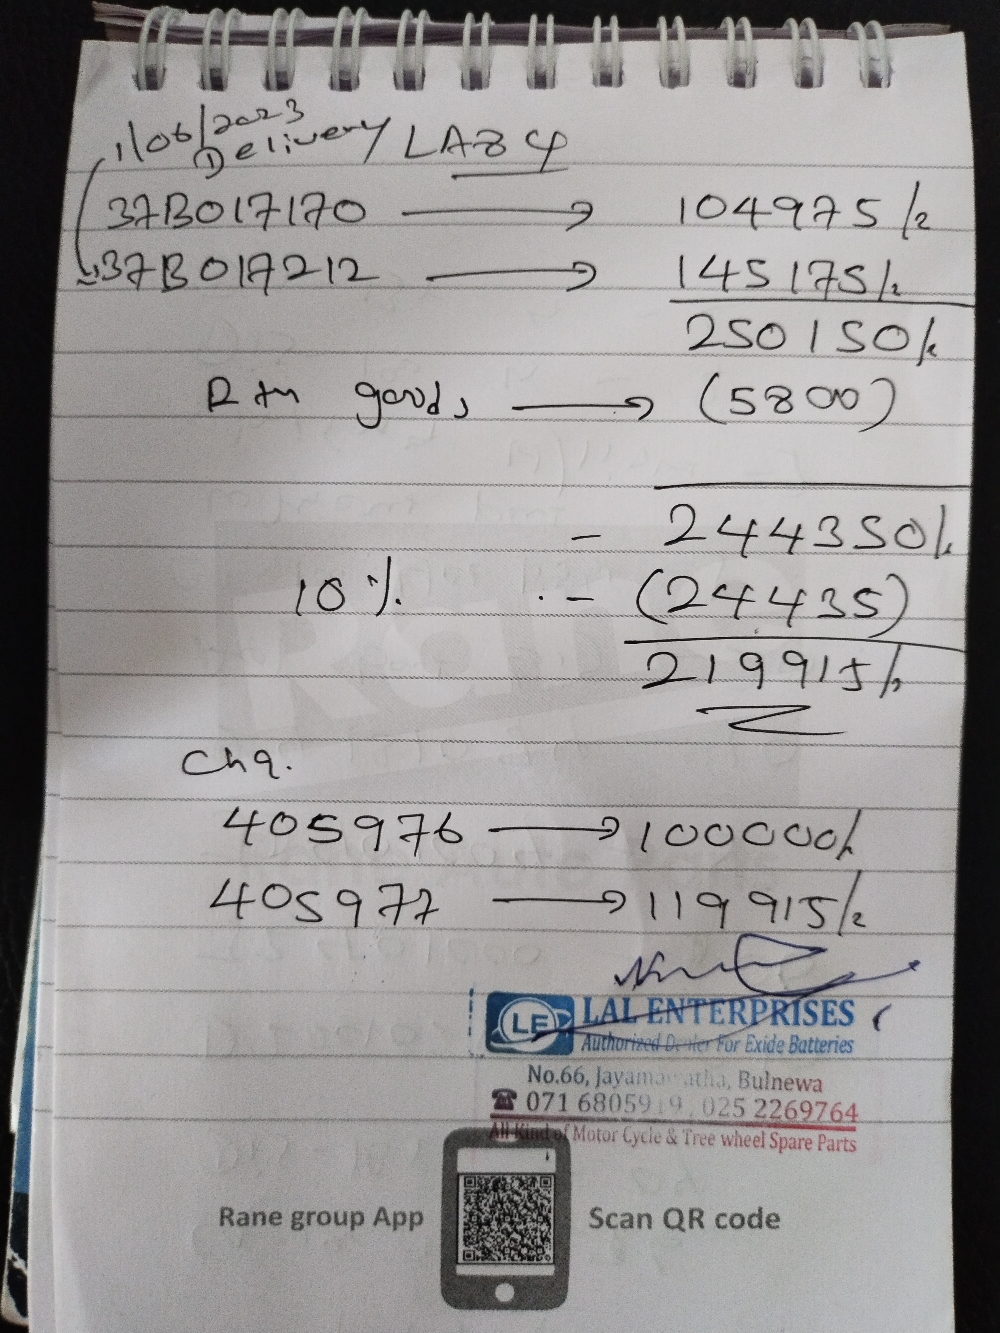 1/06/2023
Delivery LAB 4
37B017170 → 104975/=
37B017212 → 145175/=
250150/=
Rtn goods → (5800)
- 244350/=
10% - (24435)
219915/=
Chq.
405976 → 100000/=
405977 → 119915/=
LE LAL ENTERPRISES
Authorized Dealer For Exide Batteries
No.66, Bulnewa
025 2269764
All Kind of Motor Cycle & Tree wheel Spare Parts
Rane group App Scan QR code